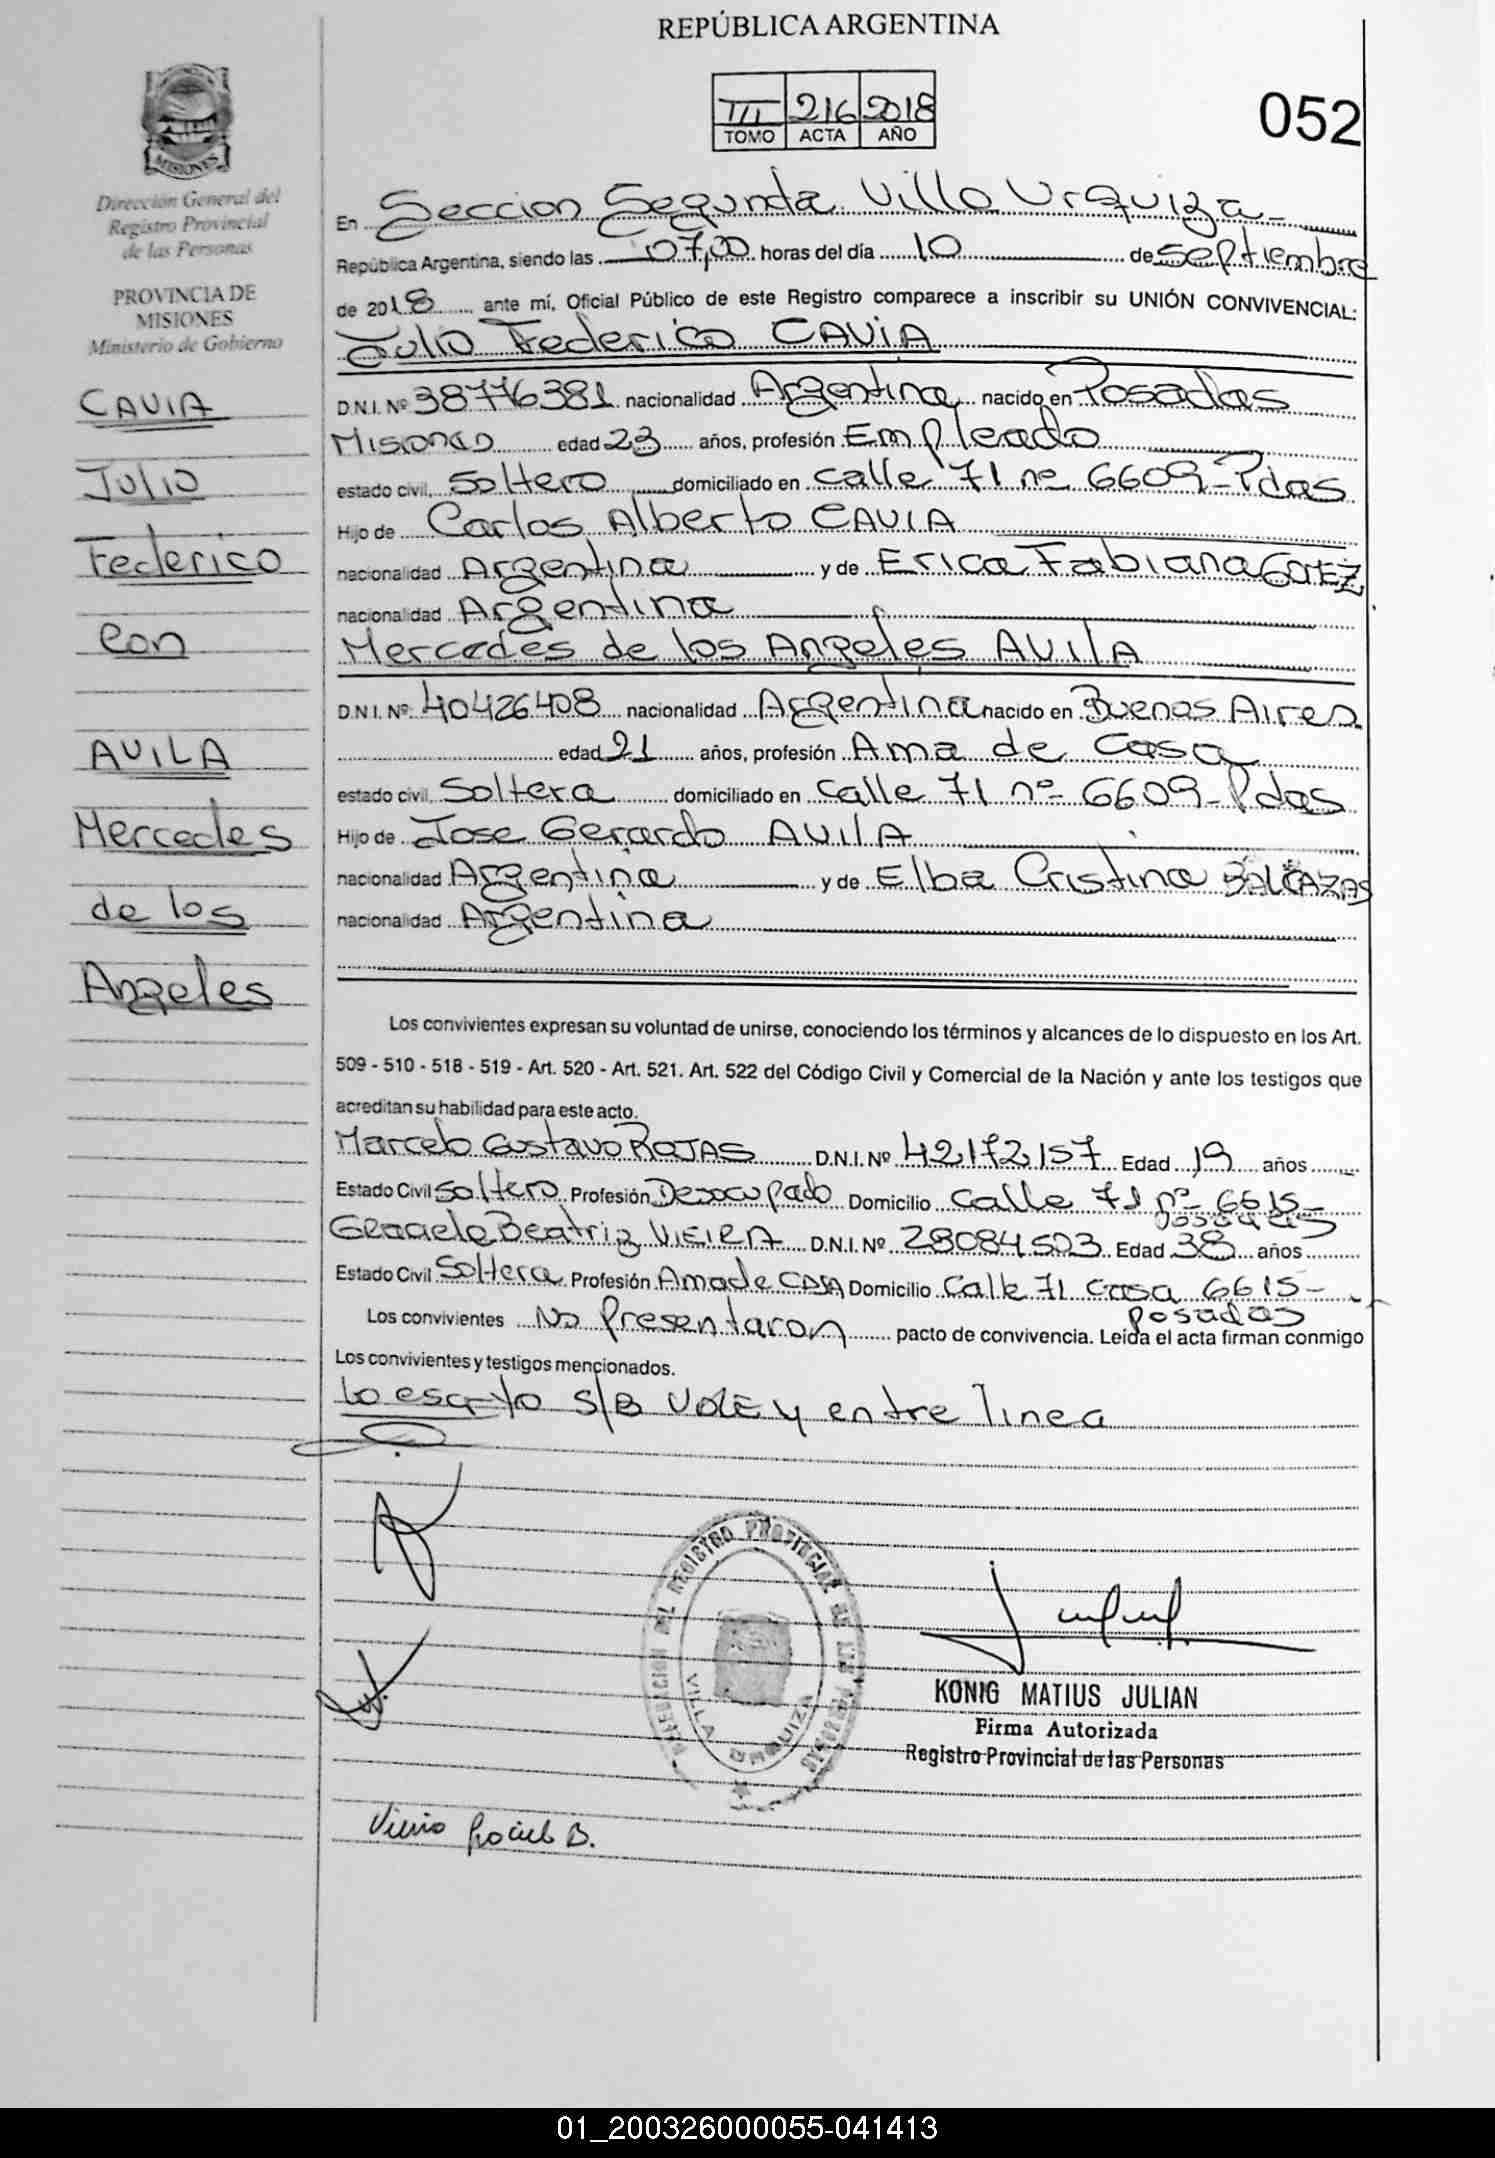 REPÚBLICA ARGENTINA
III 216 2018
TOMO ACTA AÑO
052
MISIONES
Dirección General del
Registro Provincial
de las Personas
PROVINCIA DE
MISIONES
Ministerio de Gobierno
CAVIA
Julio
Federico
con
AVILA
Mercedes
de los
Angeles
En Seccion Segunda Villa Urquiza
República Argentina, siendo las 07,00 horas del día 10 de septiembre
de 2018 ante mí, Oficial Público de este Registro comparece a inscribir su UNIÓN CONVIVENCIAL:
Julio Federico CAVIA
D.N.I. Nº 38776381 nacionalidad Argentina nacido en Posadas
Misiones edad 23 años, profesión Empleado
estado civil Soltero domiciliado en calle 71 nº 6609-Pdas
Hijo de Carlos Alberto CAVIA
nacionalidad Argentina y de Erica Fabiana GOMEZ
nacionalidad Argentina
Mercedes de los Angeles AVILA
D.N.I. Nº 40426408 nacionalidad Argentina nacido en Buenos Aires
edad 21 años, profesión Ama de casa
estado civil Soltera domiciliado en calle 71 nº 6609-Pdas
Hijo de Jose Gerardo AVILA
nacionalidad Argentina y de Elba Cristina
nacionalidad Argentina
Los convivientes expresan su voluntad de unirse, conociendo los términos y alcances de lo dispuesto en los Art.
509 - 510 - 518 - 519 - Art. 520 - Art. 521. Art. 522 del Código Civil y Comercial de la Nación y ante los testigos que
acreditan su habilidad para este acto.
Marcelo Gustavo ROJAS D.N.I. Nº 42172157 Edad 19 años
Estado Civil Soltero Profesión Desocupado Domicilio Calle 71 nº 6615-
Posadas
Beatriz VIEIRA D.N.I. Nº 28084503 Edad 38 años
Estado Civil Soltera Profesión Ama de CASA Domicilio Calle 71 casa 6615-
Posadas
Los convivientes No Presentaron pacto de convivencia. Leída el acta firman conmigo
Los convivientes y testigos mencionados.
lo escrito S/B VALE y entre linea
DELEGACION DEL REGISTRO PROVINCIAL DE LAS PERSONAS
VILLA URQUIZA
KONIG MATIUS JULIAN
Firma Autorizada
Registro Provincial de las Personas
01_200326000055-041413